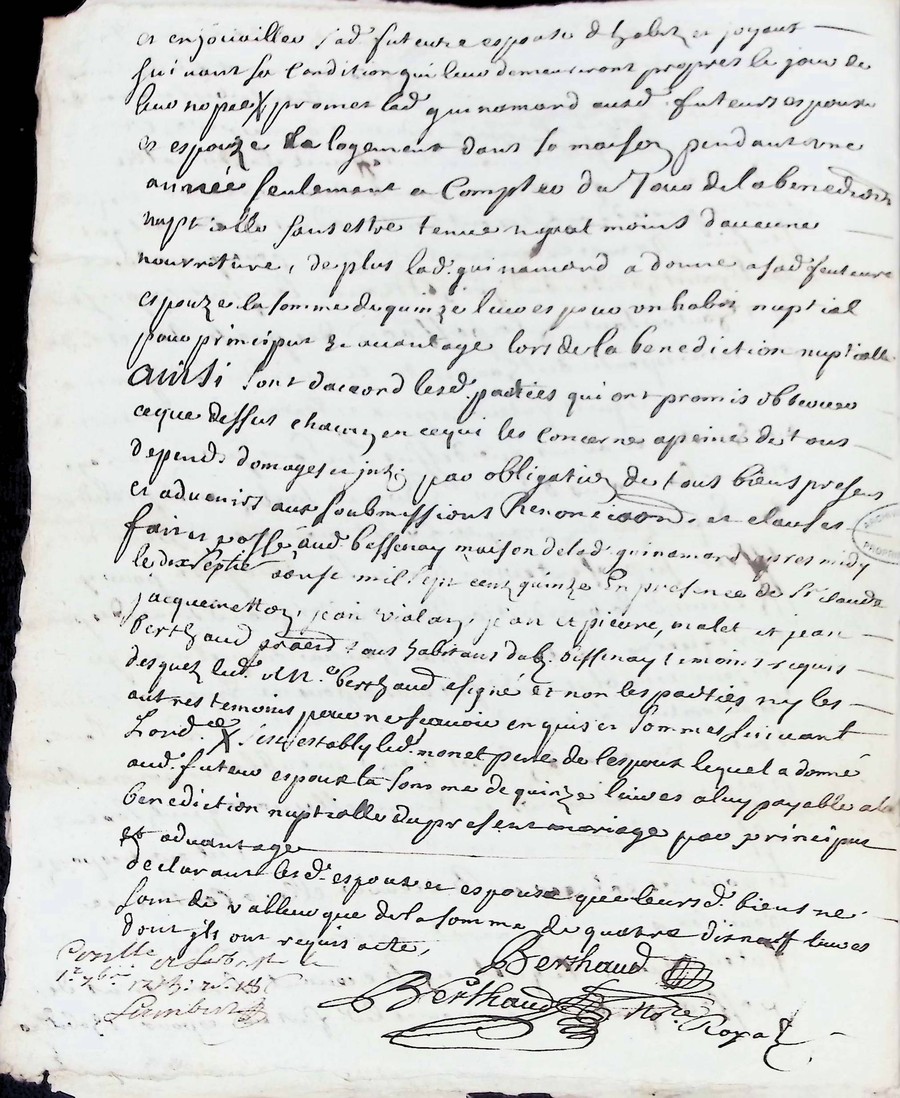 et enjouailler sad. futeure espouse d'habitz et joyaux
suivant sa condition qui luy demeureront propres le jour de
leur nopce X promet lad. guinamard ausd. futeurs espoux
et espouze la logement dans sa maison pendant une
année seulement a compter du jour de la benediction
nuptialle sans estre tenue ny quat moins daucune
nourriture, de plus lad. guinamard a donné a sad. feuteure
espouze la somme de quinze livres pour un habit nuptial
pour principut & avantage lors de la benediction nuptialle
ainsi sont daccord lesd. parties qui ont promis observer
ce que dessus chacun en ce qui les concerne a peine de tous
depends domages et intz. par obligation de tous biens presens
et advenirs aux soubmissions Renonciaons. et clauses
fait et passé aud. bessenay maison de lad. guinamard apres midy
le dix septie aoust mil sept cent quinze En presence de Sr Claude
jacquemetton, jean violay, jean et pierre malet et jean
berthaud tous habitans dud. bissenay temoins requis
desquelz led. Sr berthaud a signé et non les parties ny les
autres temoins pour ne sçavoir enquis et sommés suivant
Lordce. X s'est estably led. monet pere de lespoux lequel a donné
aud. futeur espoux la somme de quinze livres a luy payable a la
benediction nuptialle du present mariage par principut
et advantage
declarant lesd. espoux et espouse que leurs d. biens ne
sont de valleur que de la somme de quatre dixneuf livres
dont ils ont requis acte,
Berthaud
Berthaud Nore Royal
Lambert